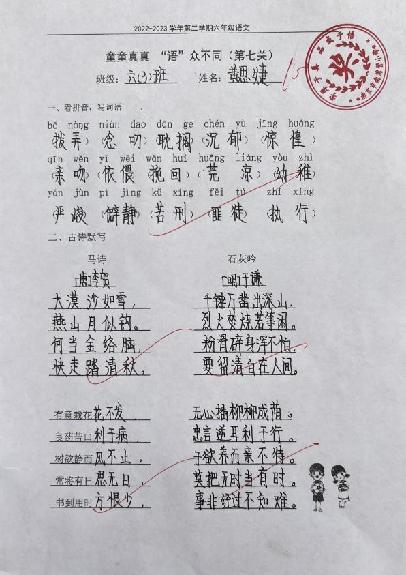 2022-2023学年第二学期六年级语文
童童真真 “语”众不同（第七关）
班级：六(3)班 姓名：
奖
一、看拼音，写词语
bō nòng niàn dao dān ge chén yù jīng huáng
(拨弄) (念叨) (耽搁) (沉郁) (惊惶)
qīn wěn yī wēi wǎn huí huāng liáng yòu zhì
(亲吻) (依偎) (挽回) (荒凉) (幼稚)
yán jùn pì jìng kǔ xíng fěi tú zhí xíng
(严峻) (僻静) (苦刑) (匪徒) (执行)
二、古诗默写
马诗 石灰吟
唐李贺 明于谦
大漠沙如雪， 千锤万凿出深山，
燕山月似钩。 烈火焚烧若等闲。
何当金络脑， 粉骨碎身浑不怕，
快走踏清秋。 要留清白在人间。
有意栽花花不发， 无心插柳柳成荫。
良药苦口利于病， 忠言逆耳利于行。
树欲静而风不止， 子欲养而亲不待。
常将有日思无日， 莫把无时当有时。
书到用时方恨少， 事非经过不知难。